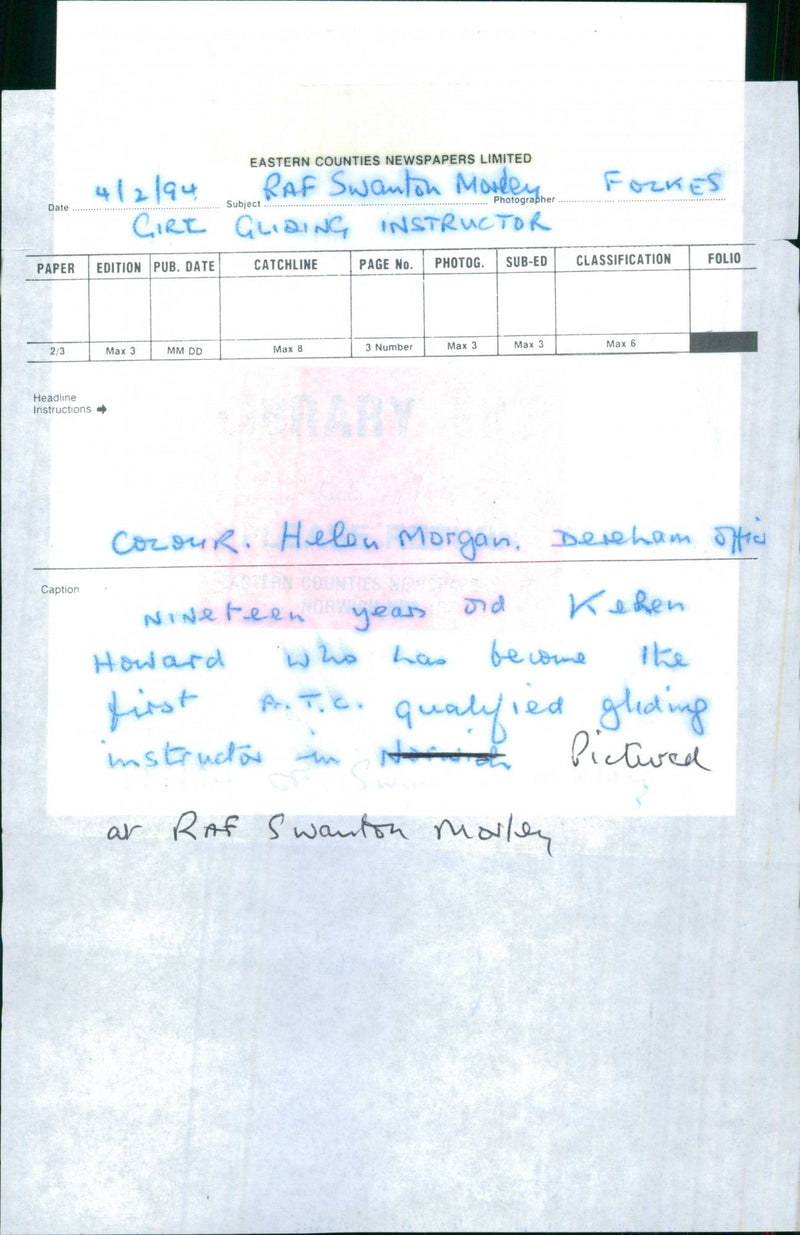 EASTERN COUNTIES NEWSPAPERS LIMITED
Date 4/2/94 Subject RAF Swanton Morley Photographer FOLKES
GIRL GLIDING INSTRUCTOR
PAPER EDITION PUB. DATE CATCHLINE PAGE No. PHOTOG. SUB-ED CLASSIFICATION FOLIO
2/3 Max 3 MM DD Max 8 3 Number Max 3 Max 3 Max 6
Headline
Instructions
COLOUR. Helen Morgan. Dereham Offic
Caption
NINeteen years old
Howard who has become the
first A.T.C. qualified gliding
instructor in Norwich Pictured
at RAF Swanton Morley